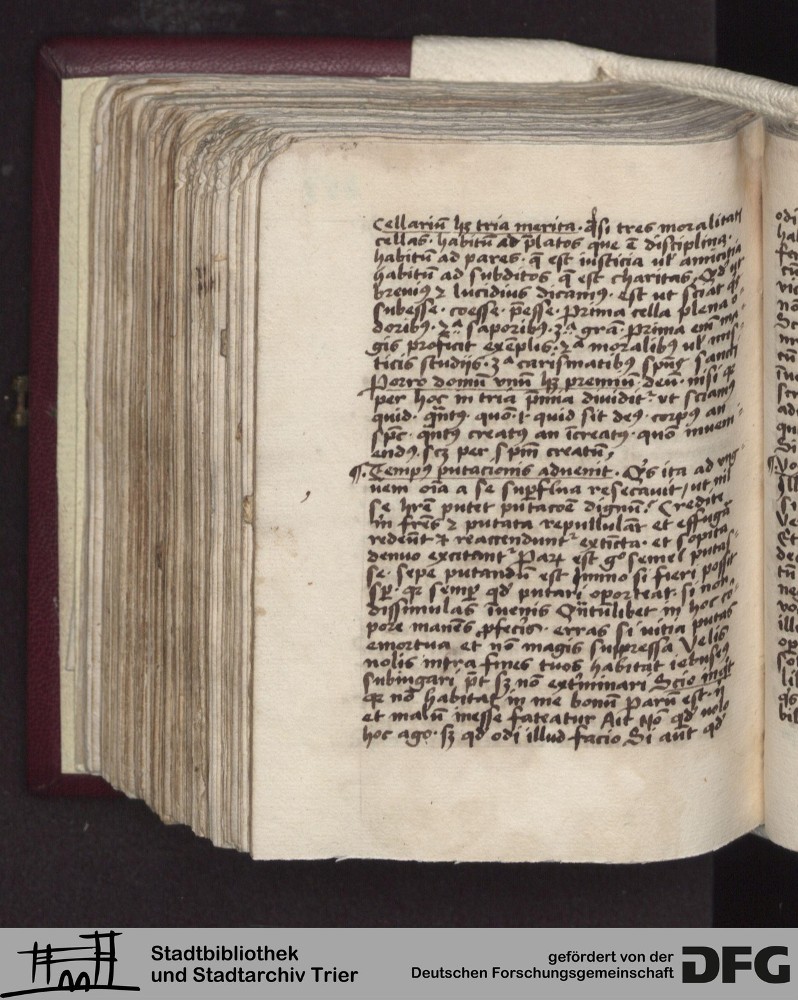 Cellariu̅ hꝫ tria merita · q̅si tres moralitati
cellas · habitu̅ ad p̅latos que e̅ disciplina ·
habitu̅ ad pares · q̅ est iusticia ul̅ amicitia
habitu̅ ad subditos q̅ est charitas · Qd̅
breuiꝰ ⁊ lucidius dicamꝰ · est ut sciat
subesse · coesse · p̅esse · Prima cella plena o
doribꝰ · 2ª saporibꝰ · 3ª gra̅ · Prima em̅ ma
gis proficit exe̅plis · 2ª moralibꝰ ul̅ mis
ticis studijs · 3ª carismatibꝰ sp̅us sancti
Porro domu̅ vnu̅ hꝫ premiu̅ · deu̅ · nisi
per hoc in tria p̅mia diuidit᷑ · vt sciamꝰ
quid · qu̅tꝰ · quo̅ · quid sit deꝰ · corpꝰ an
sp̅c · qu̅tꝰ creatꝰ an i̅creatꝰ · quo̅ inueni
endꝰ · scꝫ per sp̅m creatu̅ ·
¶ · Tempꝰ putacionis aduenit · Q̅s ita ad vng
uem oi̅a a se sup̅flua resecauit / ut nil
se h̅re̅ putet putaco̅e dignu̅ · Credite
m̅ fr̅es ⁊ putata repullula̅t et effuga
rede̅ut ⁊ reaccendunt᷑ exti̅cta · et sopita
denuo excitant᷑ Paꝝ est gͦ semel putas
se · sepe putandu̅ est Immo si fieri possit
sp̅ · qꝛ semp̅ qd̅ putari oporteat · si non
dissimulas i̅uenis Qu̅tu̅libet in hoc co
pore mane̅s ꝓfec̅is · erras si uitia putas
emortua et no̅ magis supp̅ressa Velis
nolis intra fines tuos habitat iebuseꝰ
subiugari p̅t sꝫ no̅ exte̅rminari Scio inq̅t
qꝛ no̅ habitat in me bonu̅ Paru̅ est · ni
et malu̅ inesse fateatur Ait No̅ qd̅ uolo
hoc ago · sꝫ qd̅ odi illud facio Si aut̅ qd̅
Stadtbibliothek
und Stadtarchiv Trier
gefördert von der
Deutschen Forschungsgemeinschaft
DFG